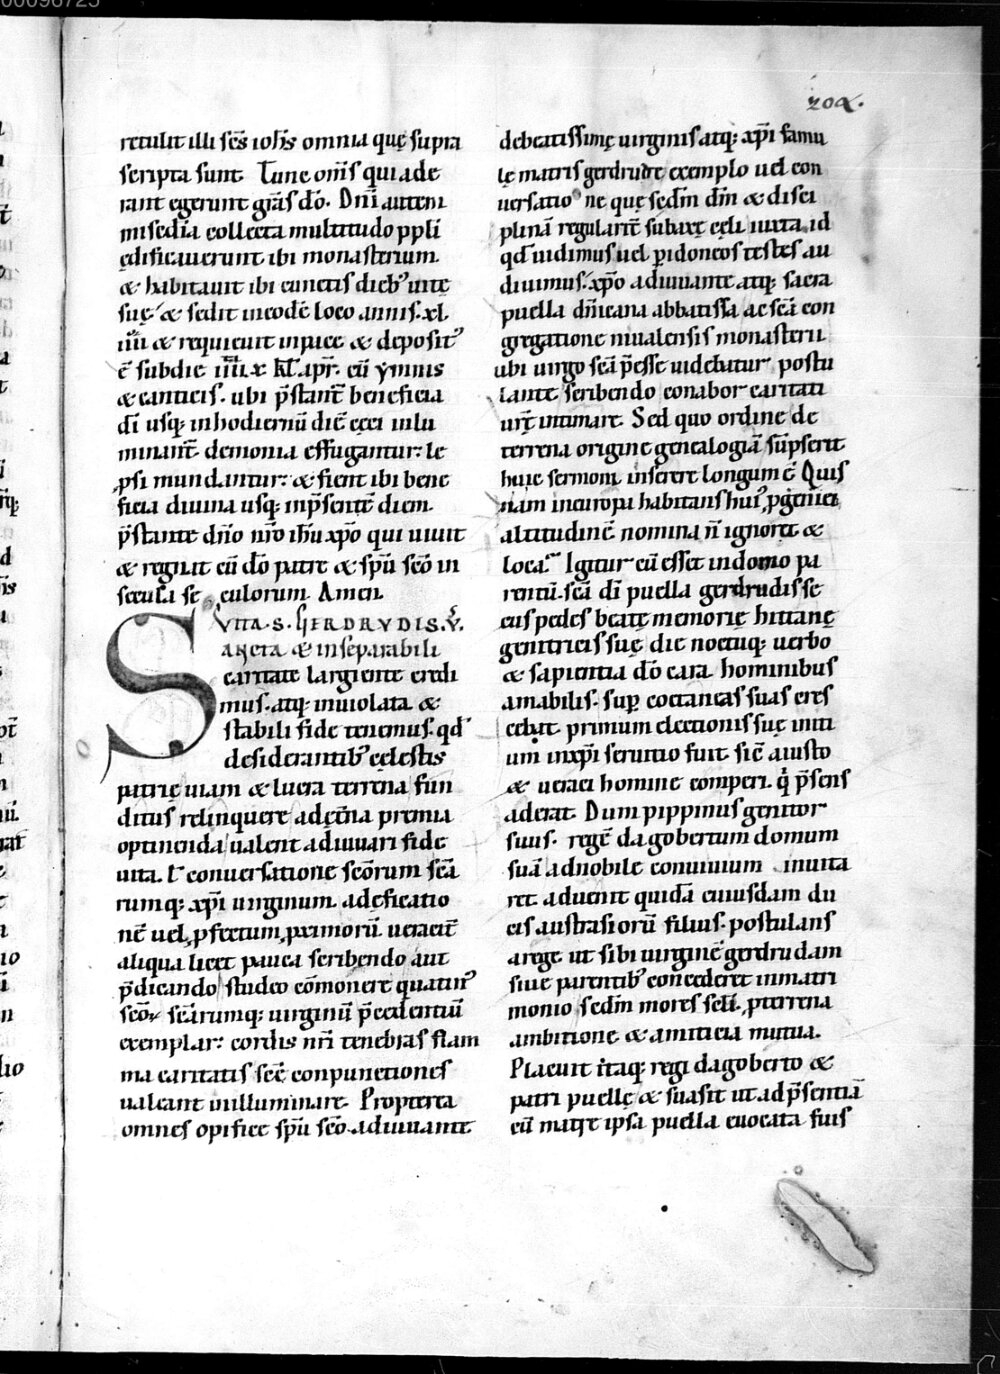 204.
retulit illi scs̄ ioh̄s omnia quę supra
scripta sunt Tunc om̄s qui ade
rant egerunt gr̄as dō. Dn̄i autem
mis̄edia collecta multitudo ppl̄i
ędificauerunt ibi monasterium
& habitauit ibi cunctis dieb; uitę
suę; & sedit in eodē loco annis. xl.
iiii & requieuit in pace & deposit᾽
ē sub die iiii.x kl̄. apr̄. cū ymnis
& canticis. ubi p̄stant᷑ beneficia
dī usq; in hodiernū diē ceci inlu
minant᷑ demonia effugantur: le
ꝓsi mundantur: & fient ibi bene
ficia diuina usq; in p̄sentē diem.
p̄stante dn̄o nr̄o ih̄u xp̄o qui uiuit
& regnat cū dō patre & sp̄u scō in
secula se culorum. Amen
VITA . S . GERDRVDIS . V.
Sancta & inseparabili
caritate largiente credi
mus. atq; inuiolata &
stabili fide tenemus. qd̄
desiderantib; cęlestis
patrię uiam & lucra terrena fun
ditus relinquere ad ęt̄na premia
optinenda ualent adiuuari fide
uita. l̄ conuersatione scōrum scā
rumq; xp̄i uirginum adeficatio
nē uel ꝓfectum ꝓximorū. ueracit᷑
aliqua licet pauca scribendo aut
p̄dicando studeo cōmonere quatin᾽
scōꝝ scārumq; uirginū p̄cedentiū
exemplar: cordis nr̄i tenebras flam
ma caritatis scē conpunctionis
ualeant inilluminare. Propterea
omnes opifice sp̄u scō adiuuante
de beatissimę uirginis atq; xp̄i famu
lę matris gerdrudę exemplo uel con
uersatio ne quę sedm̄ dm̄ & disci
plinā regularit᷑ sub axe cęli iuxta id
qd̄ uidimus uel p̱ idoneos testes au
diuimus. xp̄o adiuuante atq; sacra
puella dn̄icana abbatissa ac scā con
gregatione niualensis monasterii
ubi uirgo scā p̄esse uidebatur. postu
lante scribendo conabor caritati
ur̄ę intimare. Sed quo ordine de
terrena origine genealogiā sūpserit
huic sermoni inserere longum ē Quis
nam in europa habitans hui᾽ ꝓgeniei
altitudinē nomina n̄ ignorat &
loca. Igitur cū esset in domo pa
rentū. scā dī puella gerdrudis se
cus pedes beatę memorię hittanę
genitricis suę die noctuq; uerbo
& sapientia dō cara hominibus
amabilis. sup̱ coetaneas suas cres
cebat primum electionis suę initi
um in xp̄i seruitio fuit sic a iusto
& ueraci homine comperi. q̇ p̄sens
aderat. Dum pippinus genitor
suus. regē dagobertum domum
suā ad nobile conuiuium inuita
ret aduenit quidā cuiusdam du
cis austrasiorū filius. postulans
a rege ut sibi uirginē gerdrudam
siue parentib; concederet in matri
monio sedm̄ mores sclī. ꝓ terrena
ambitione & amiticia mutua.
Placuit itaq; regi dagoberto &
patri puellę & suasit ut ad p̄sentiā
eū matre ipsa puella euocata fuis